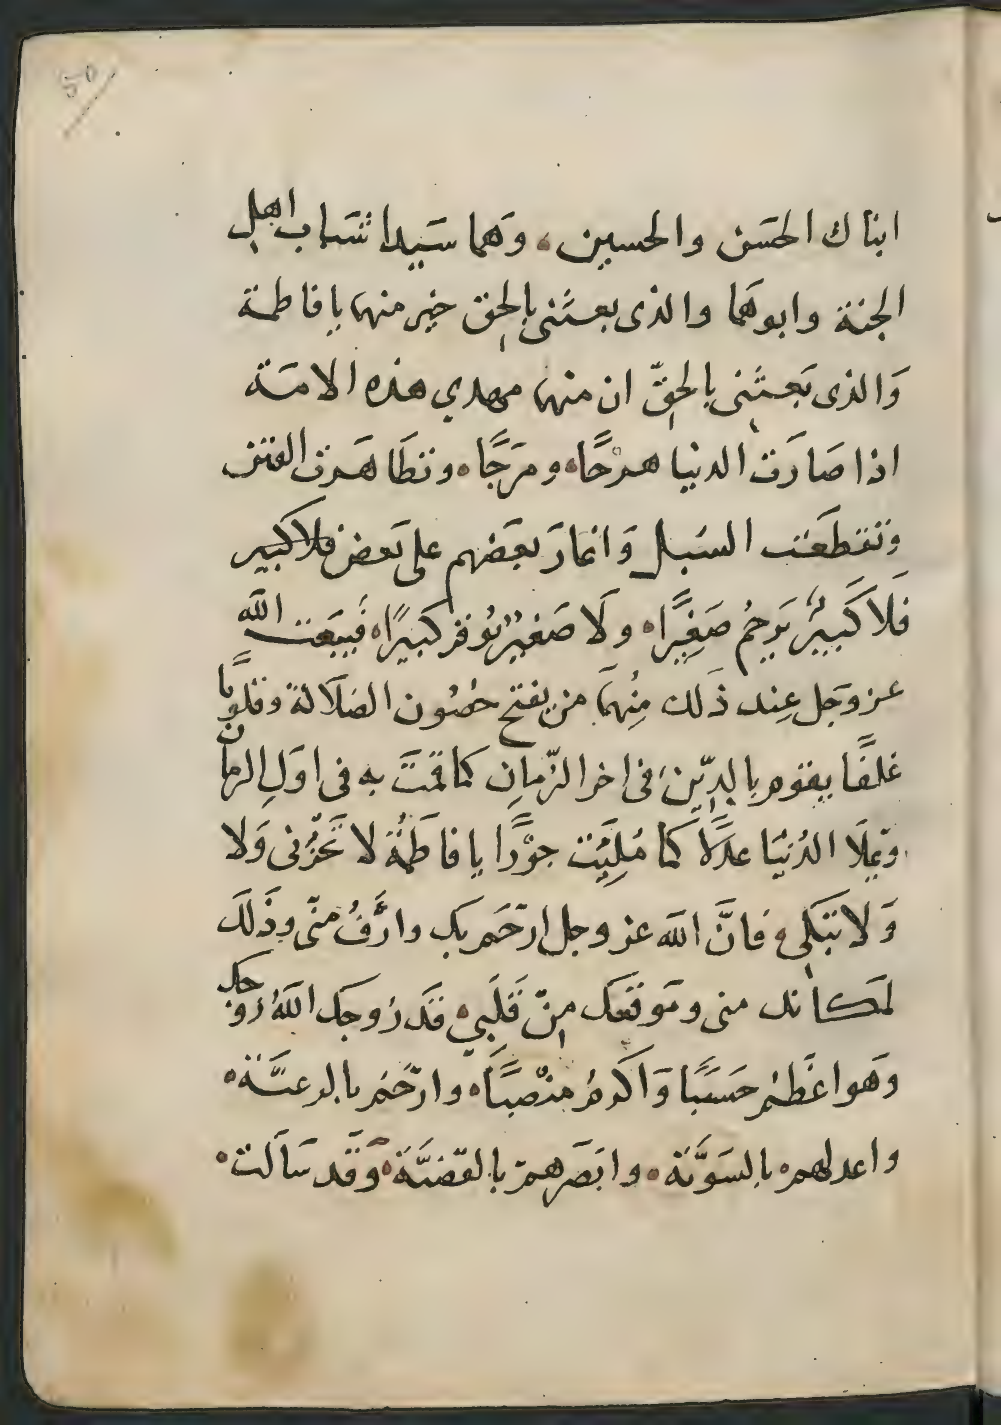 50
ابناك الحسَن والحسين، وَهما سَيدا شبَاب اهل
الجنة وابوهَما والذى بعثنى بالحق خير منهما يا فاطمة
وَالذى بَعثَنى بالحقّ ان منهما مهدي هذه الامَة
اذا صَارَت الدنيا هرْجًا، ومرَجًا، وتظَاهَرت الفتن
وتقطعَت السُبل وَاغارَ بعَضهم على بَعض فلا كبير
فَلَا كَبيرٌ يَرحَمُ صَغِيرًا، ولَا صَغيرٌ يُوقر كَبيرًا، فَيَبعَث اللّه
عز وجَل عِند ذَلك مِنُهمَا من يفتح حصُون الضلَالة وقلوبًا
غلفًا يقوم بالدِّين فى اخر الزّمانِ كما قمتَ به فى اوَلِ الزمان
ويملَا الدُنيَا عدلًا كما مُلِئَت جوْرًا يا فاطمَةُ لا تحَزُنى وَلا
وَلا تبَكى، فانَّ اللّه عز وجل ارَحَم بكِ وارَأفُ منّى وذَلكَ
لمَكانك منى ومَوقعَك مِنّ قَلَبي، قَد زُوجَك اللّهُ زوجك
وَهو اعَظم حَسَبًا وَاكرم منْصبًا، وارحَم بالرعيَّة،
واعدلهم، بالسَويَّة، وابصَرهم بالقضيَّة، وَقد سَألت،